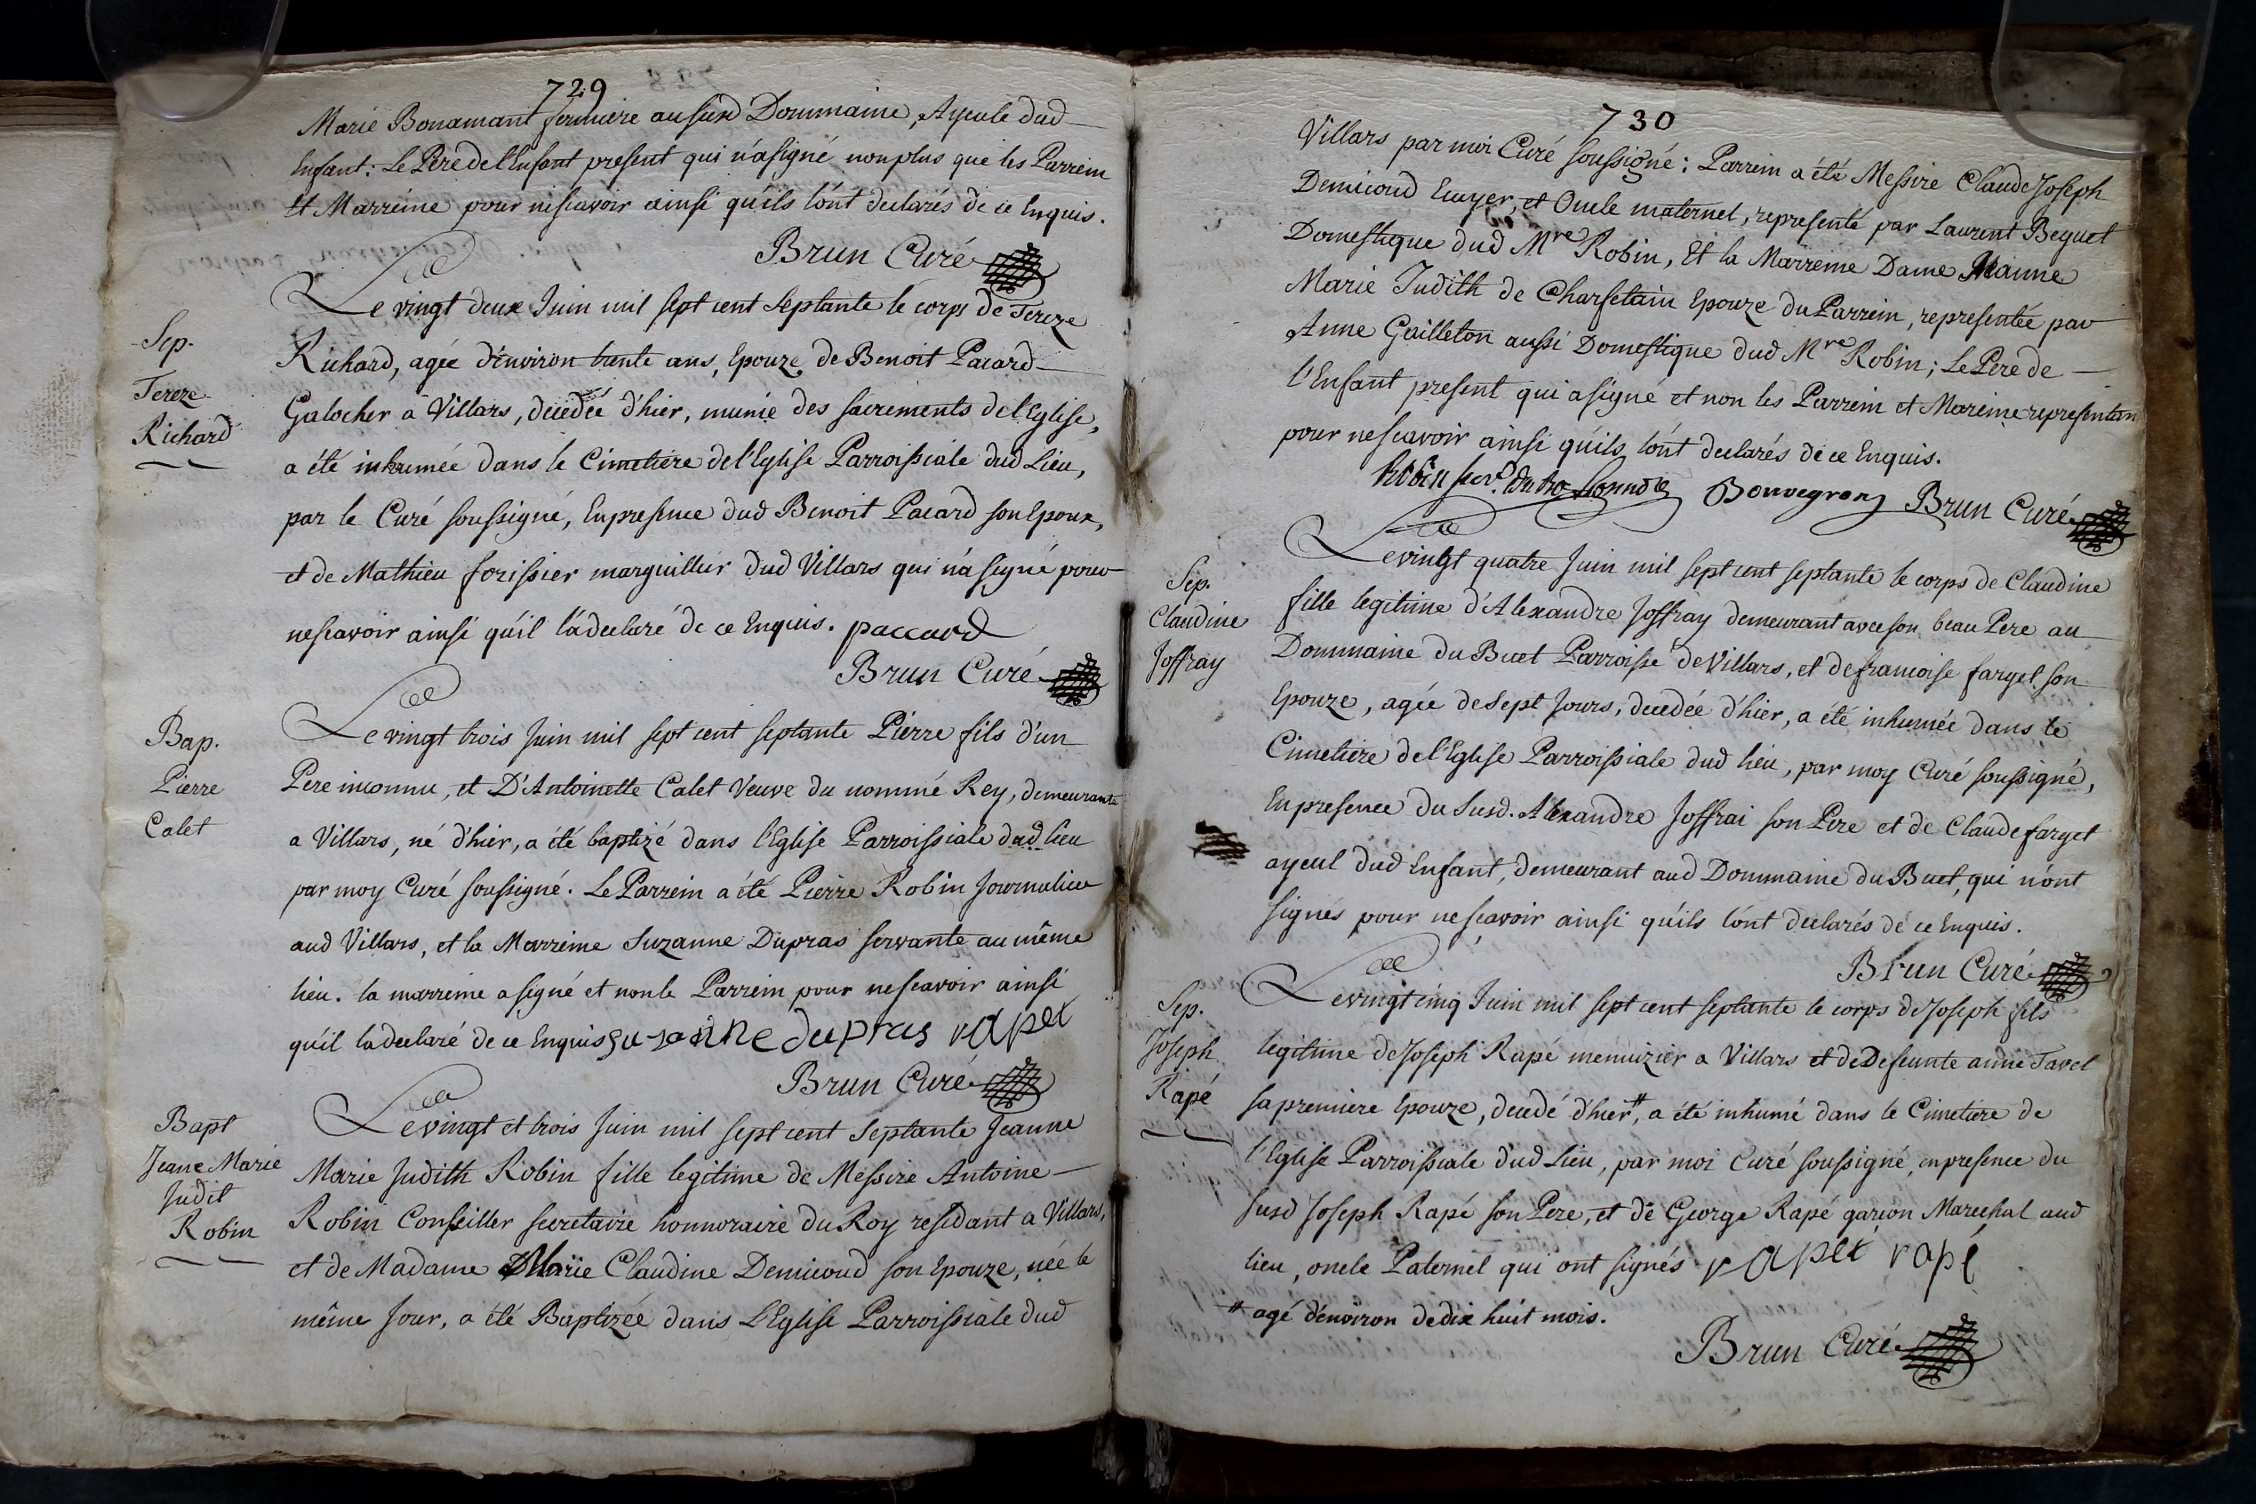 729
Marie Bonamant fermiere au susd Dommaine, Ayeule dud
Enfant: Le Pere de l'Enfant present qui n'a signé non plus que les Parrein
Et Marreine pour ne scavoir ainsi qu'ils l'ónt declarés de ce Enquis.
Brun Curé
Sep.
Tereze
Richard
Le vingt deux Juin mil sept cent septante le corps de Tereze
Richard, agée d'environ trente ans, Epouze de Benoit Pacard
Galocher a Villars, decedée d'hier, munie des sacrements de l'Eglise,
a été inhumée dans le Cimetiere de l'Eglise Parroissiale dud Lieu,
par le Curé soussigné, En presence dud Benoit Pacard son Epoux,
et de Mathieu forissier marguillier dud Villars qui n'a signé pour
ne scavoir ainsi qu'il l'a declaré de ce Enquis. paccard
Brun Curé
Bap.
Pierre
Calet
Le vingt trois Juin mil sept cent septante Pierre fils d'un
Pere inconnu, et D'Antoinette Calet Veuve du nommé Rey, demeurante
a Villars, né d'hier, a été baptizé dans l'Eglise Parroissiale dud lieu
par moy Curé soussigné. Le Parrein a été Pierre Robin Journalier
aud Villars, et la Marreine Suzanne Dupras servante au même
lieu. la marreine a signé et non le Parrein pour ne scavoir ainsi
qu'il la declaré de ce Enquis susanne dupras rapet
Brun Curé
Bapt
Jeane Marie
Judit
Robin
Le vingt et trois Juin mil sept cent septante Jeanne
Marie Judith Robin fille legitime de Messire Antoine
Robin Conseiller secretaire honnoraire du Roy residant a Villars,
et de Madame Marie Claudine Demicoud son Epouze, née le
même Jour, a été Baptizée dans L'Eglise Parroissiale dud
730
Villars par moi Curé soussigné: Parrein a été Messire Claude Joseph
Demicoud Ecuyer, et Oncle maternel, representé par Laurent Beguet
Domestique dud Mre Robin, Et la Marreine Dame Jeanne
Marie Judith de Charsetain Epouze du Parrein, representée par
Anne Gailleton aussi Domestique dud Mre Robin; Le Pere de
l'Enfant present qui a signé et non les Parrein et Mareine representan
pour ne scavoir ainsi qu'ils l'ónt declarés de ce Enquis.
Robin Bonvegron Brun Curé
Sep.
Claudine
Joffray
Le vingt quatre Juin mil sept cent septante le corps de Claudine
fille legitime d'Alexandre Joffray demeurant avec son beau Pere au
Dommaine du Buet Parroisse de Villars, et de francoise farget son
Epouze, agée de sept Jours, decedée d'hier, a été inhumée dans le
Cimetiere de l'Eglise Parroissiale dud lieu, par moy Curé soussigné,
En presence du Susd. Alexandre Joffrai son Pere et de Claude farget
ayeul dud Enfant, demeurant aud Dommaine du Buet, qui n'ont
signés pour ne scavoir ainsi qu'ils l'ónt declarés de ce Enquis.
Brun Curé
Sep.
Joseph
Rapé
Le vingt cinq Juin mil sept cent septante le corps de Joseph fils
legitime de Joseph Rapé menuizier a Villars et de Defeunte anne Tavel
sa premiere Epouze, decedé d'hier #, a été inhumé dans le Cimetiere de
l'Eglise Parroissiale dud Lieu, par moi Curé soussigné, en presence du
susd Joseph Rapé son Pere, et de George Rapé garcon Marechal aud
lieu, oncle Paternel qui ont signés rapet rapé
# agé d'environ de dix huit mois.
Brun Curé